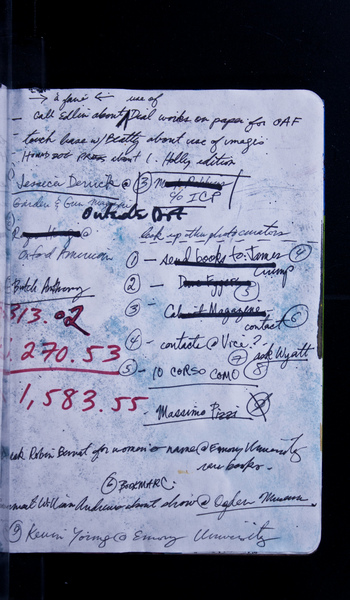 → a favé ← use of
- call Ellin about Deal works on paper for OAF
- touch base w/ Beatty about use of images
- about 1. Holly edition
Jessica Derrick @ ③
Garden & Gun
c/o ICP
Outside Art
look up the photo curators
① - send books to: James Crump ④
Oxford American
② - Dave Eggers ⑤
Butch Anthony
③ - Cabinet Magazine,
contact ⑥
313.02
④ - contacts @ Vice?
⑦ ask Wyatt
1,270.53
⑤ - 10 CORSO COMO ⑧
1,583.55
- Massimo Pizzi ⑨
ask Robin Bernat for woman's name @ Emory University
rare books -
⑥ BOOKMARC.
William Andrews about show @ Ogden Museum
⑨ Kevin Young @ Emory University